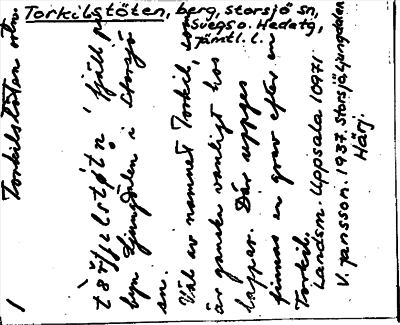 Torkilstöten, berg, storsjö sn,
Svegs o. Hedetg,
Jämtl. l.
Torkilstöten
fjäll på
byn Ljungdalen i Storsjö
sn.
Väl av namnet Torkil, som
är ganska vanligt hos
lappar. Där uppges
finnas en grav efter en
Torkil.
Landsm. Uppsala 10971
V. Jansson. 1937. Storsjö, Ljungdalen
Härj.